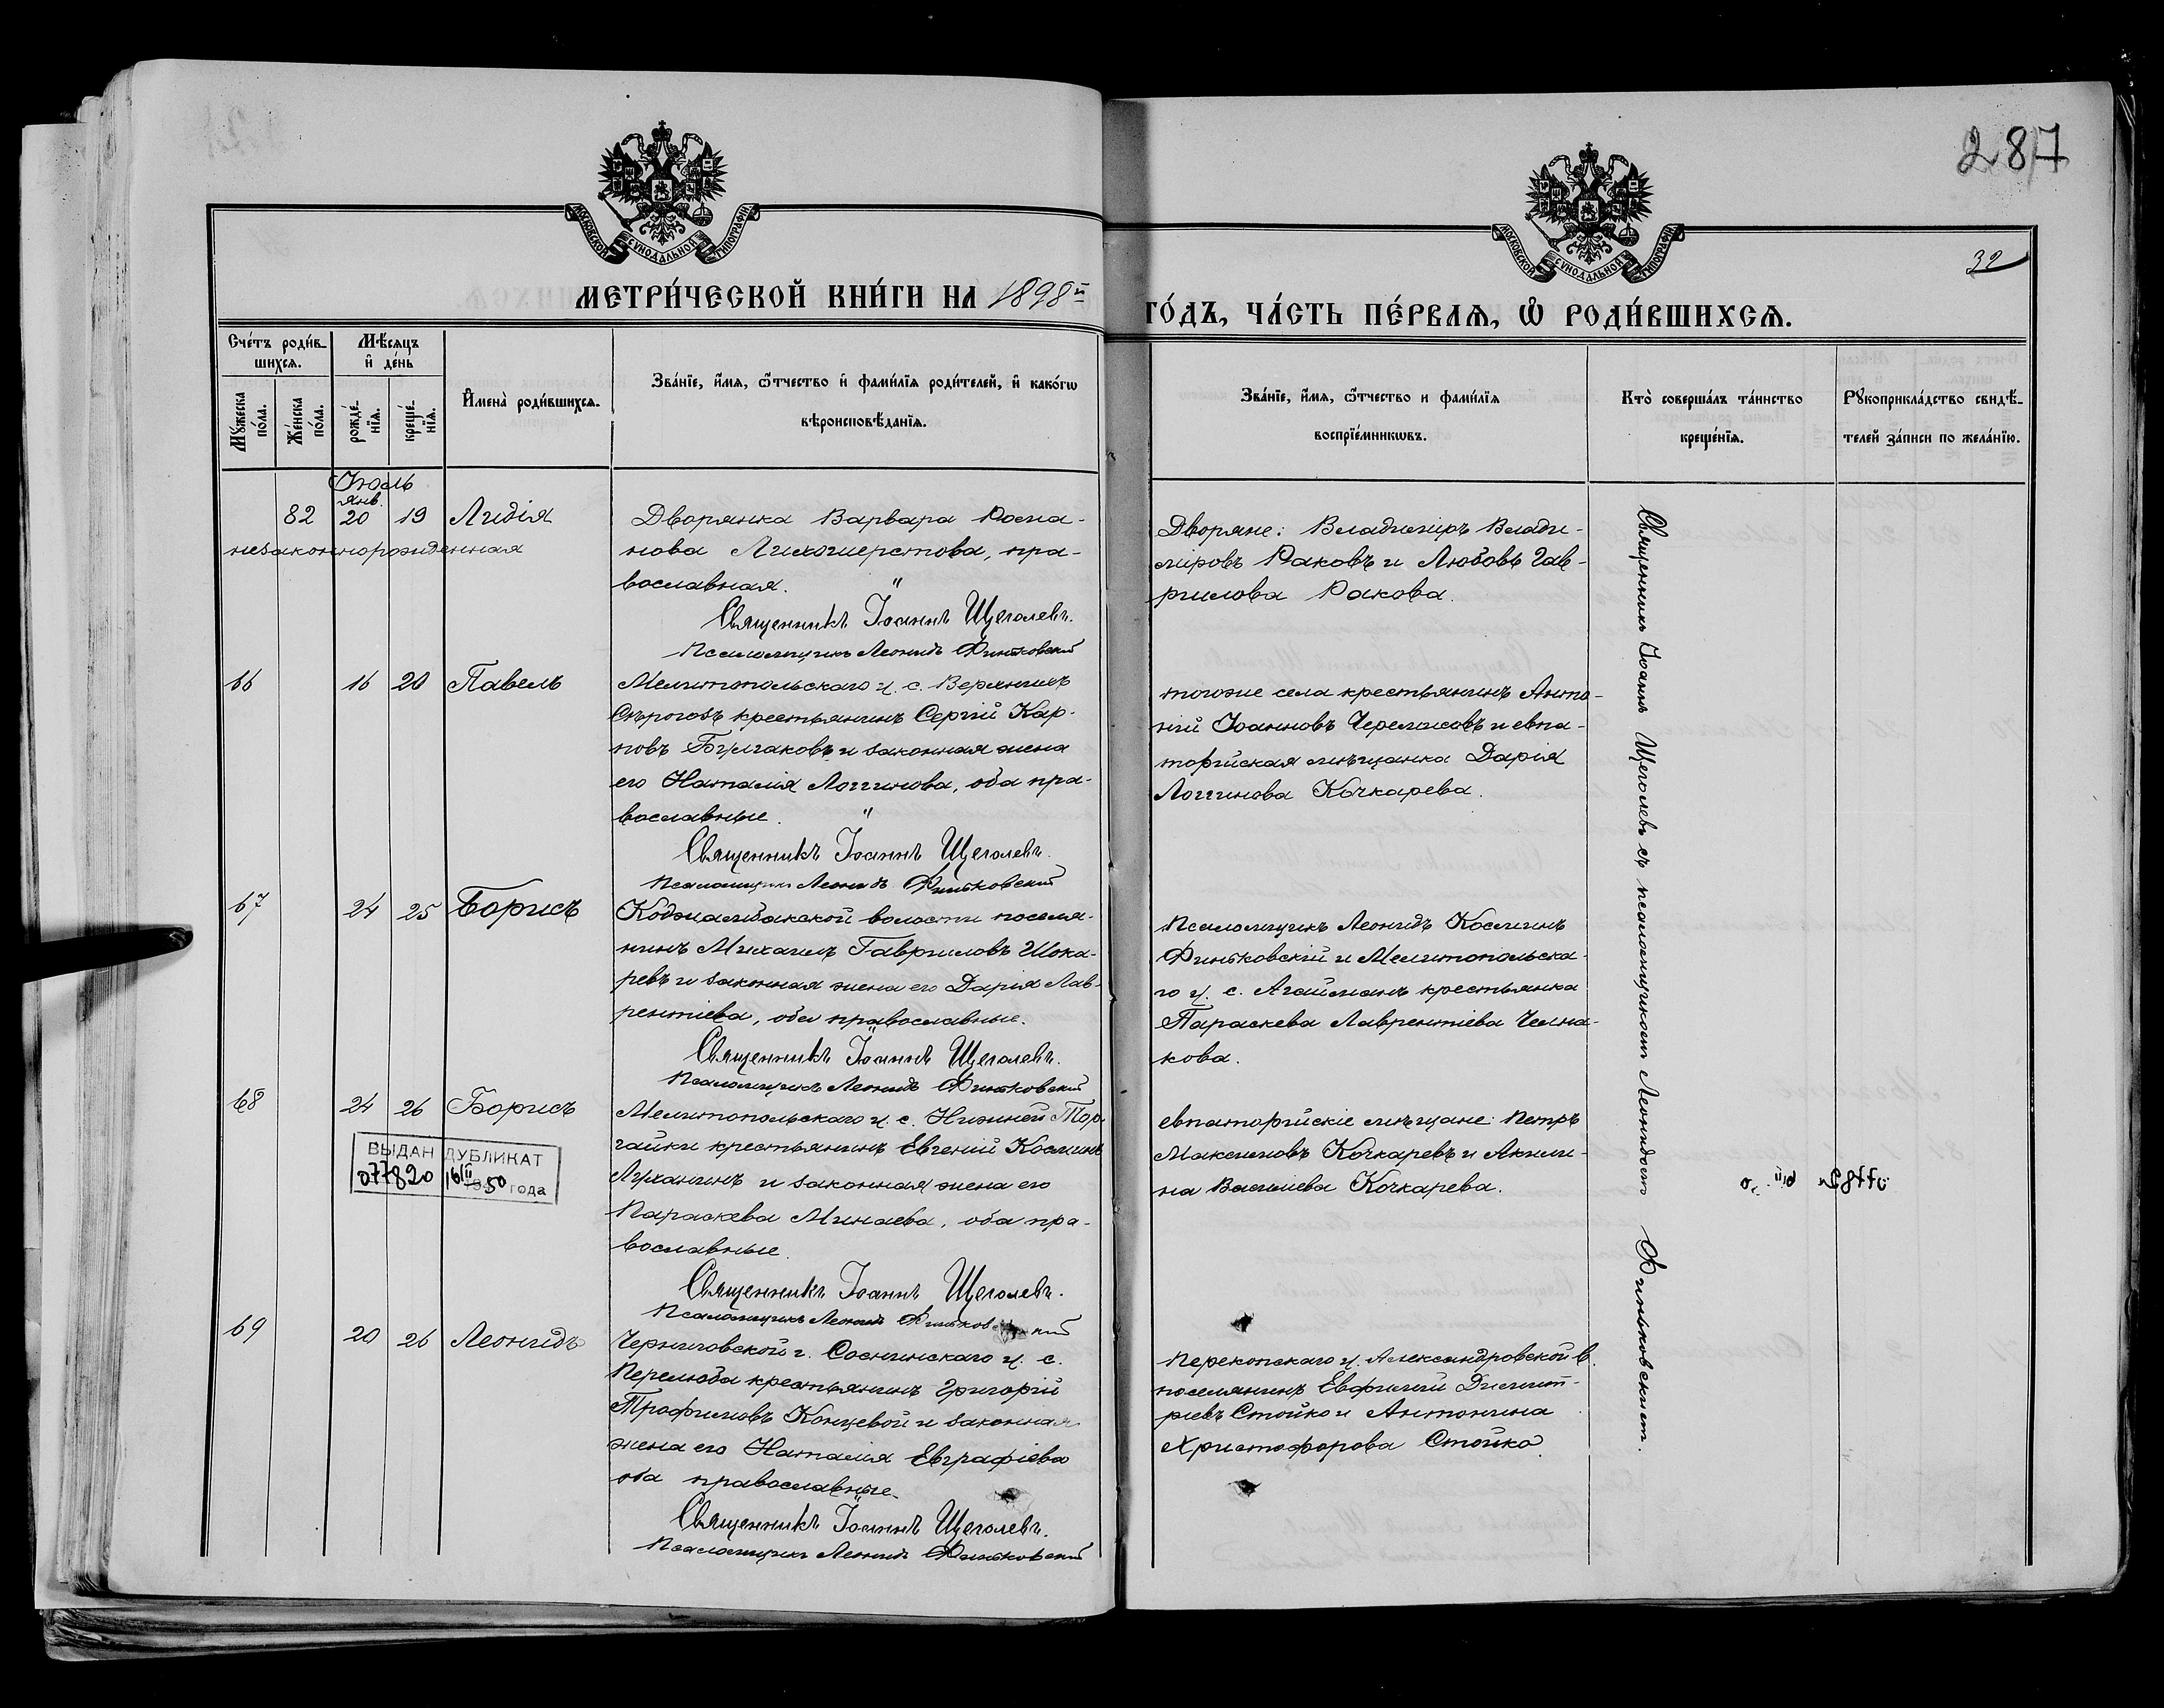 287
32
МОСКОВСКОЙ СѴНОДАЛЬНОЙ ТИПОГРАФІИ
МОСКОВСКОЙ СѴНОДАЛЬНОЙ ТИПОГРАФІИ
МЕТРИ́ЧЕСКОЙ КНИ́ГИ НА 1898й
ГО́ДЪ, ЧА́СТЬ ПЕ́РВАЯ, Ѡ҆ РОДИ́ВШИХСЯ.
Сче́тъ роди́в-
шихся.
Мѣ́сяцъ
и҆ де́нь
Мꙋ́жеска по́ла.
Же́нска по́ла.
рожде́-
нїя.
креще́-
нїя.
И҆мена̀ роди́вшихся.
Зва́нїе, и҆́мя, ѻ҆́тчество и҆ фами́лїя роди́телей, и҆ како́гѡ
вѣроисповѣ́данїя.
Зва́нїе, и҆́мя, ѻ҆́тчество и фами́лїя
воспрїе́мникѡвъ.
Кто̀ соверша́лъ та́инство
креще́нїя.
Рꙋкоприкла́дство свидѣ́-
телей за́писи по жела́нїю.
Іюль
янв.
82 20 19 Лидія
незаконнорожденная
Дворянка Варвара Рома-
нова Лихошерстова, пра-
вославная.
Священникъ Іоаннъ Щеголевъ.
Псаломщикъ Леонидъ Финьковский
Дворяне: Владиміръ Влади-
міровъ Раковъ и Любовь Гав-
рилова Ракова.
66 16 20 Павелъ
Мелитопольскаго у. с. Верхнихъ
Сѣрогозъ крестьянинъ Сергій Кар-
повъ Булгаковъ и законная жена
его Наталія Логгинова, оба пра-
вославные.
Священникъ Іоаннъ Щеголевъ.
Псаломщикъ Леонидъ Финьковский
тогоже села крестьянинъ Анто-
ній Іоанновъ Черемисовъ и евпа-
торійская мѣщанка Дарія
Логгинова Кочкарева.
67 24 25 Борисъ
Коджамбакской волости поселя-
нинъ Михаилъ Гавриловъ Шока-
ревъ и законная жена его Дарія Лав-
рентіева, оба православные.
Священникъ Іоаннъ Щеголевъ.
Псаломщикъ Леонидъ Финьковский
Псаломщикъ Леонидъ Косминъ
Финьковскій и Мелитопольска-
го у. с. Агайманъ крестьянка
Параскева Лаврентіева Челна-
кова.
68 24 26 Борисъ
ВЫДАН ДУБЛИКАТ
077820 16/II 1950 года
Мелитопольскаго у. с. Нижней Тор-
гайки крестьянинъ Евгеній Косминъ
Луханинъ и законная жена его
Параскева Минаева, оба пра-
вославные.
Священникъ Іоаннъ Щеголевъ.
Псаломщикъ Леонидъ Финьковский
евпаторійскіе мѣщане: Петръ
Максимовъ Кочкаревъ и Акили-
на Василиева Кочкарева.
69 20 26 Леонидъ
Черниговской г. Сосницскаго у. с.
Перелюба крестьянинъ Григорій
Трофимовъ Концевой и законная
жена его Наталія Евграфіева
оба православные.
Священникъ Іоаннъ Щеголевъ.
Псаломщикъ Леонидъ Финьковский
Перекопскаго у. Александровской в.
поселянинъ Евфимій Димит-
ріевъ Стойко и Антонина
Христофорова Стойко.
Священникъ Іоаннъ Щеголевъ съ псаломщикомъ Леонидомъ Финьковскимъ.